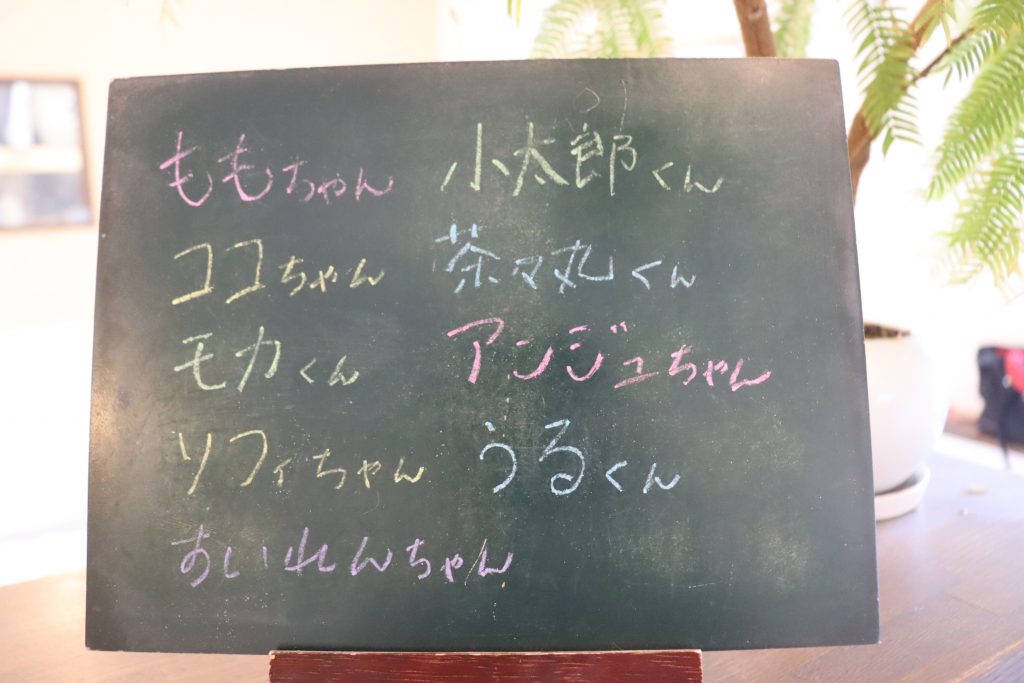 ももちゃん
ココちゃん
モカくん
ソフィちゃん
すいれんちゃん
小太郎くん
茶々丸くん
アンジュちゃん
うるくん